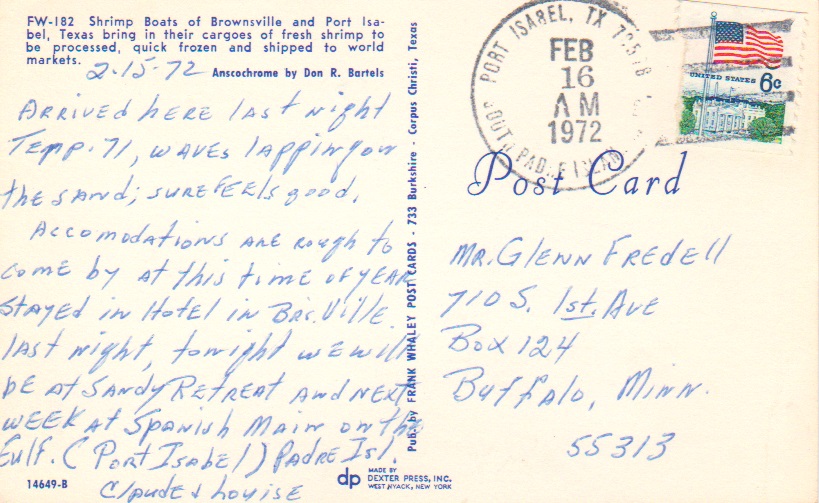 FW-182 Shrimp Boats of Brownsville and Port Isa-
bel, Texas bring in their cargoes of fresh shrimp to
be processed, quick frozen and shipped to world
markets.
Anscochrome by Don R. Bartels
2-15-72
Arrived here last night
Temp. 71, waves lapping on
the sand; sure feels good.
Accomodations are rough to
come by at this time of year
Stayed in Hotel in Brs.Ville
last night, tonight we will
be at Sandy Retreat and next
week at Spanish Main on the
Gulf. (Port Isabel) Padre Isl.
Claude & Louise
14649-B
Pub. by FRANK WHALEY POST CARDS - 733 Burkshire - Corpus Christi, Texas
dp
MADE BY
DEXTER PRESS, INC.
WEST NYACK, NEW YORK
PORT ISABEL, TX 78578
FEB
16
AM
1972
SOUTH PADRE ISLAND
UNITED STATES 6c
Post Card
Mr. Glenn Fredell
710 S. 1st. Ave
Box 124
Buffalo, Minn.
55313